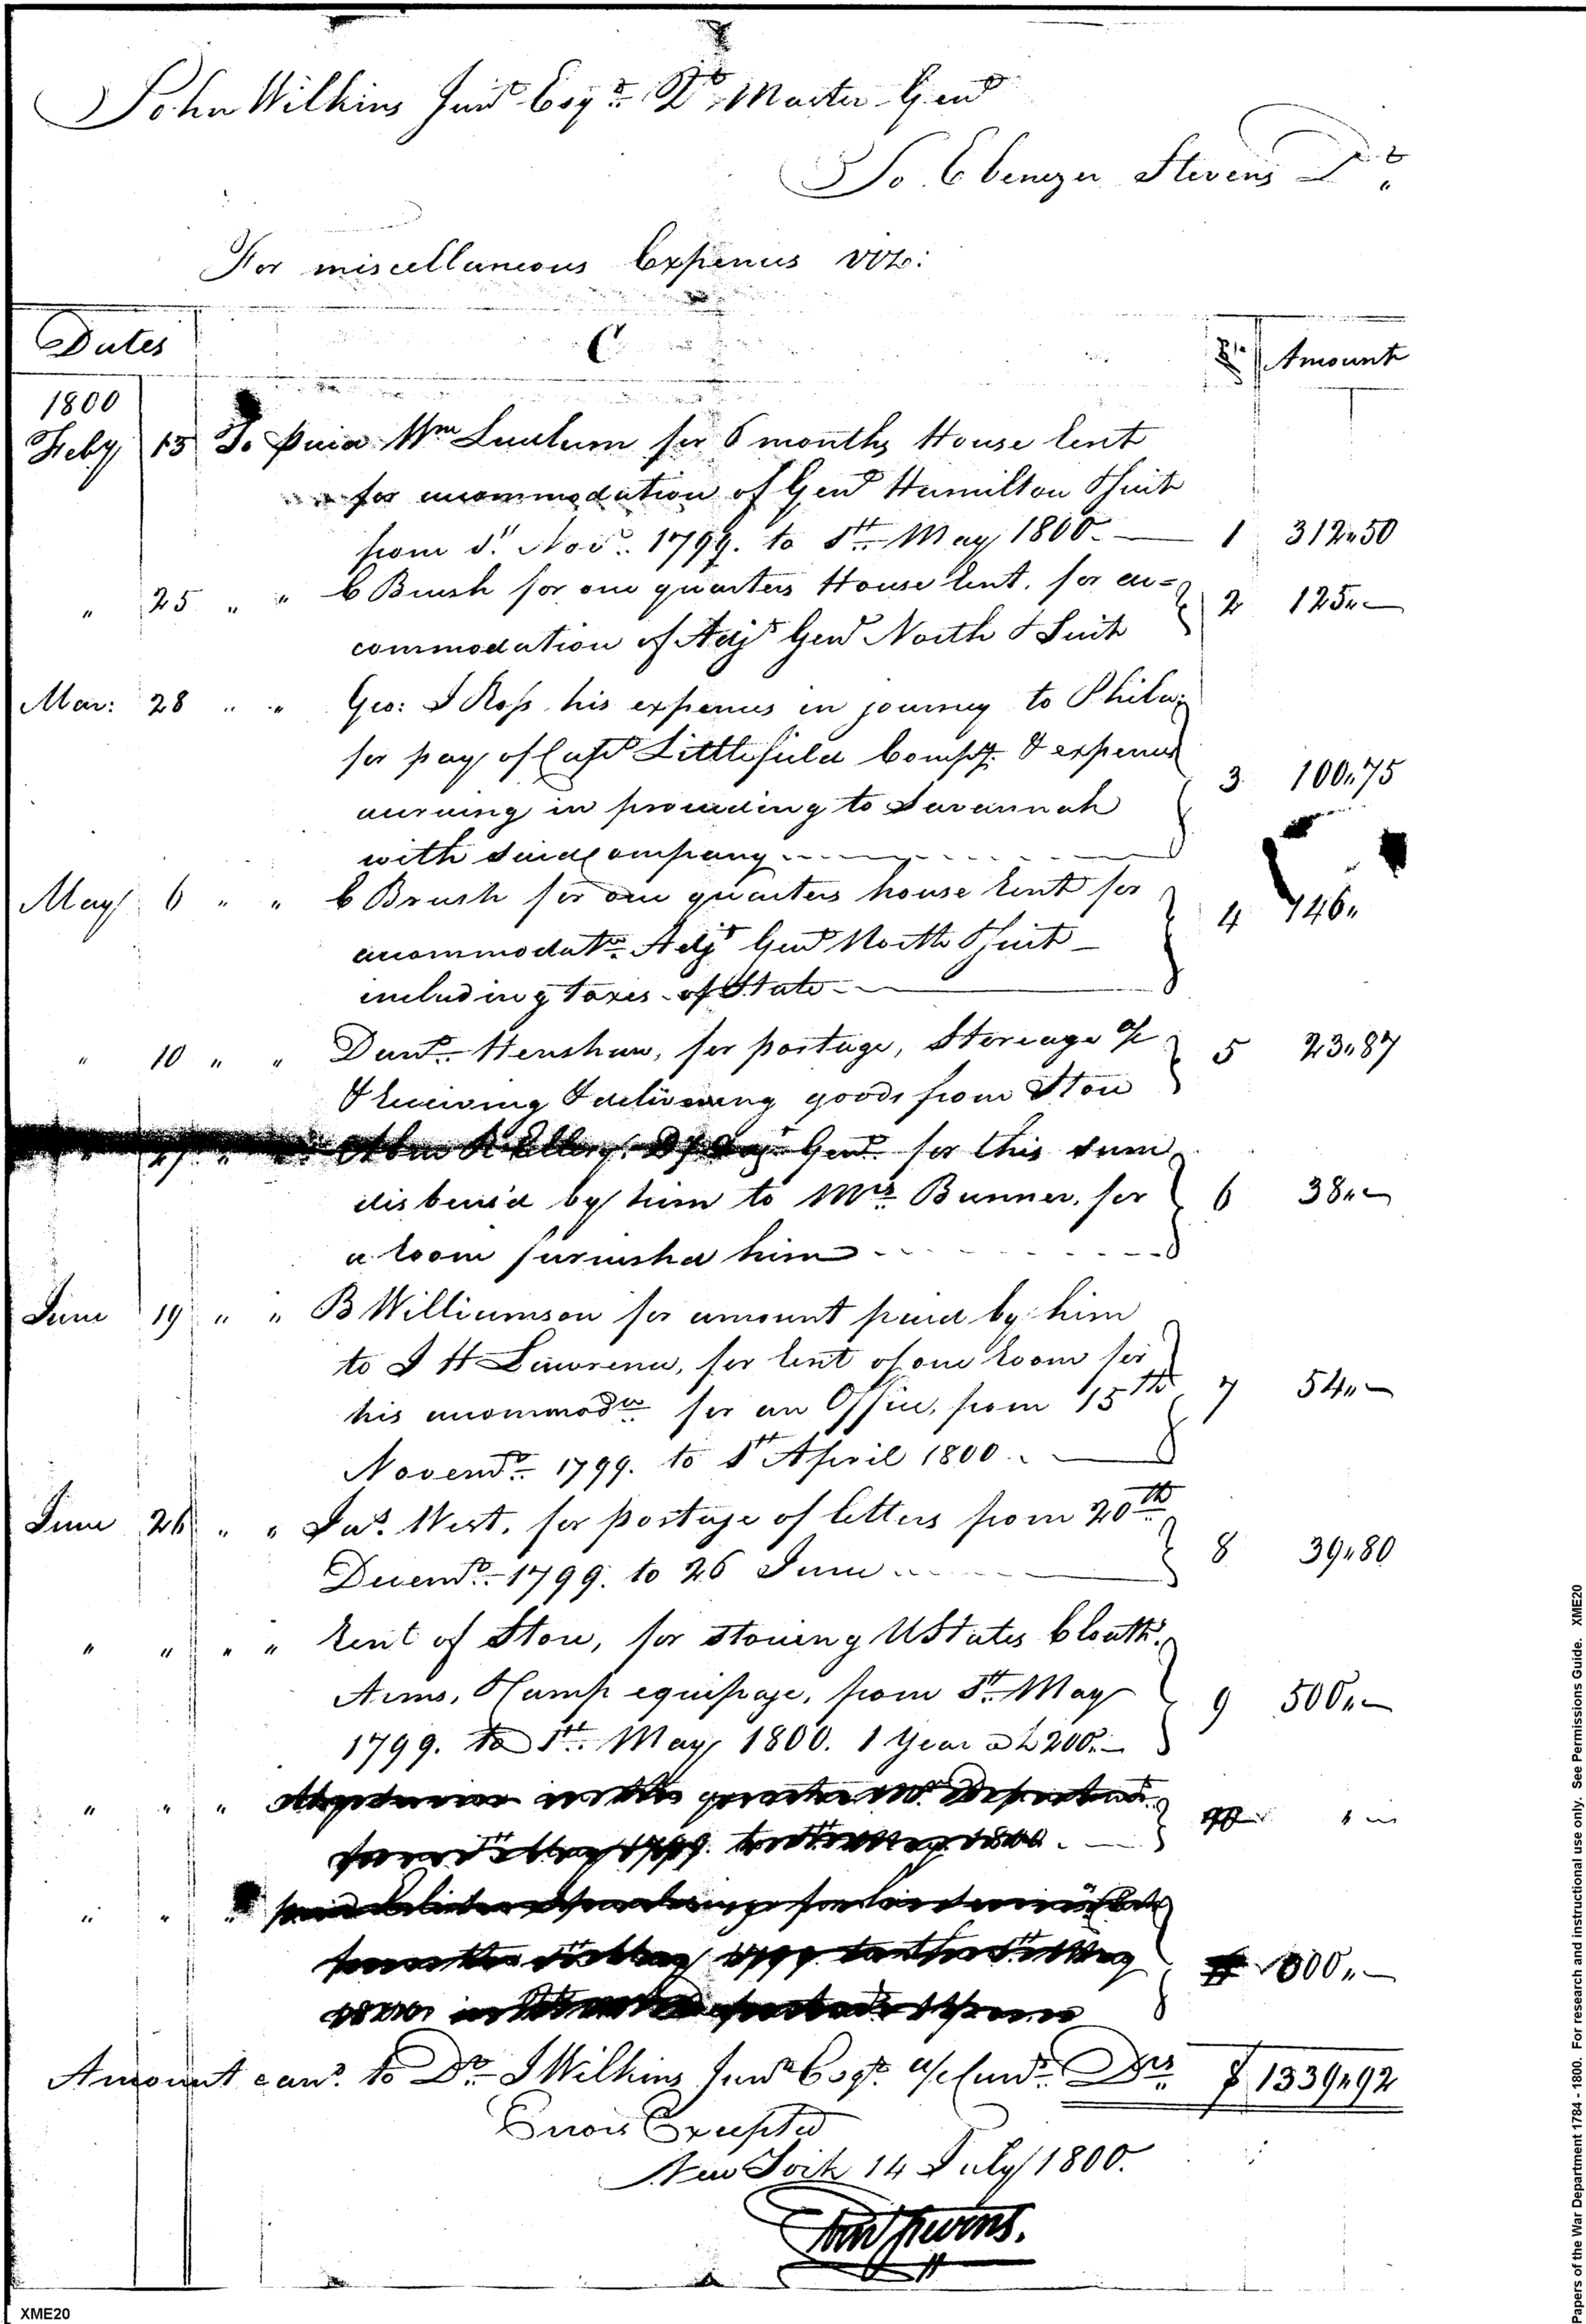 John Wilkins Junr Esqr Qr Master Genl
To Ebenezer Stevens Dr
For miscellaneous Expences viz:
Dates C Amount
1800
Feby 15 To paid Wm Ludlum for 6 months House rent
for accommodation of Genl Hamilton & Suit
from 1st Novr. 1799. to 1st May 1800. — 1 312"50
" 25 " " E Brush for one quarters House rent, for ac=
commodation of Adjt Genl North & Suit 2 125"—
Mar: 28 " " Geo: I Ross his expences in journey to Phila:
for pay of Capt Littlefield Compy. & expences
accruing in proceeding to Savannah 3 100"75
with said Company
May 6 " " E Brush for one quarters house rent for
accommodatn. Adjt Genl North & Suit 4 146"
including taxes of State
" 10 " " Danl. Henshaw, for postage, Storeage &c 5 23"87
& receiving & delivering goods from Store
" 27 " " Abm R Ellery. Genl. for this sum
disbursed by him to Mrs. Bunner, for 6 38"—
a room furnished him
June 19 " " B Williamson for amount paid by him
to J H Lawrence, for rent of one room for
his accommodn for an Office, from 15th 7 54"—
Novemr. 1799. to 1st April 1800.
June 26 " " Jas. West, for postage of letters from 20th
Decemr. 1799. to 26 June 8 39"80
" " " " rent of Store, for storeing UStates Cloathg.
Arms, & Camp equipage, from 1st. May 9 500"—
1799. to 1st. May 1800. 1 Year a £200.—
" " "
" " " 000"—
Amount carrd. to Dr. J Wilkins Junr Esqr. a/c Currt. Drs $ 1339"92
Errors Excepted
New York 14 July 1800.
Eben Stevens.
XME20
Papers of the War Department 1784 - 1800. For research and instructional use only. See Permissions Guide. XME20